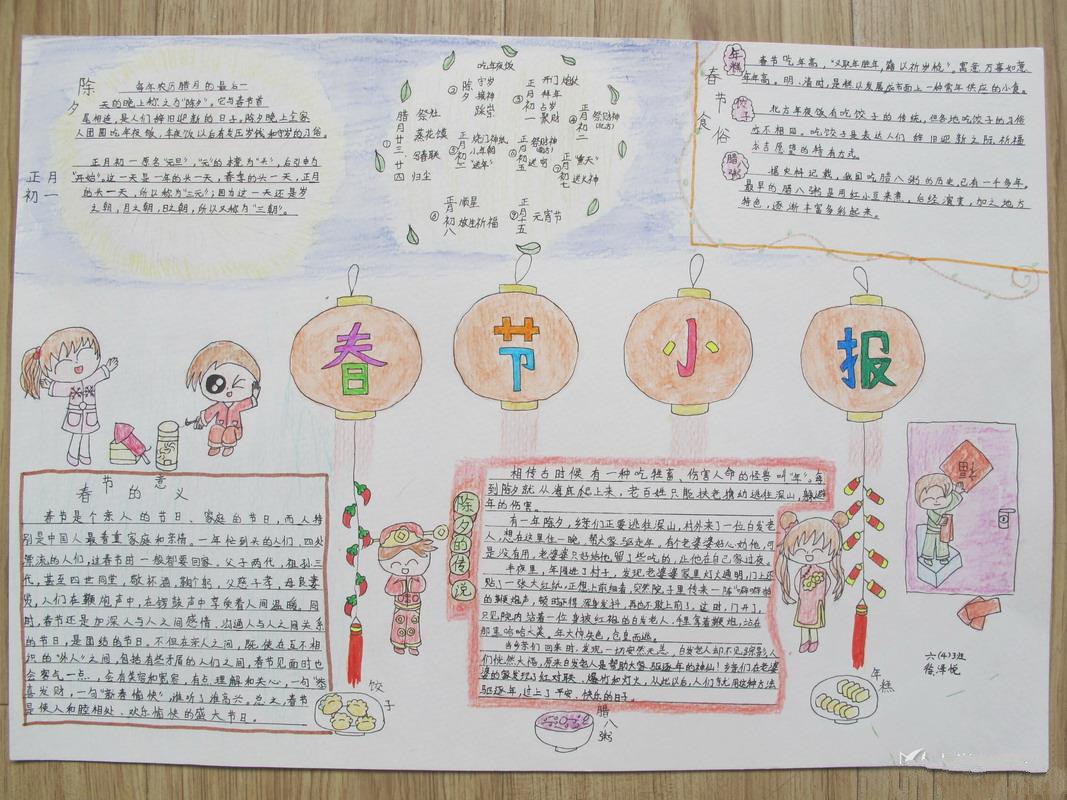 除夕
每年农历腊月的最后一
天的晚上称之为“除夕”。它与春节首
尾相连,是人们辞旧迎新的日子。除夕晚上全家
人团圆吃年夜饭,年夜饭以后有发压岁钱和守岁的习俗。
正月初一
正月初一原名“元旦”,“元”的本意为“头”,后引申为
“开始”。这一天是一年的头一天,春季的头一天,正月
的头一天,所以称为“三元”;因为这一天还是岁
之朝,月之朝,日之朝,所以又称为“三朝”。
腊月廿三
廿四
①
祭灶
蒸花馍
写春联
归尘
②除夕
吃年夜饭
守岁
接神
踩祟
③正月初一
开门炮仗
拜年
占岁
聚财
④正月初二
祭财神
(北方)
⑤正月初三
烧门神纸
小年朝
⑥正月初五
祭财神
送穷
⑦正月初七
“熏天”
送火神
⑧正月初八
顺星
放生祈福
⑨正月十五
元宵节
春节食俗
年糕
春节吃年高,“义取年胜年,藉以祈岁稔”,寓意万事如意
年年高。明、清时,是糕以发展成市面上一种常年供应的小食。
饺子
北方年夜饭有吃饺子的传统,但各地吃饺子的习俗
亦不相同。吃饺子是表达人们辞旧迎新之际祈福
求吉愿望的特有方式。
腊八粥
据史料记载,我国吃腊八粥的历史,已有一千多年。
最早的腊八粥是用红小豆来煮,后经演变,加之地方
特色,逐渐丰富多彩起来。
春节小报
春节的意义
春节是个亲人的节日、家庭的节日,而人特
别是中国人最看重家庭和亲情。一年忙到头的人们、四处
漂流的人们,过春节时一般都要回家。父子两代,祖孙三
代,甚至四世同堂,敬杯酒,鞠个躬,父慈子孝,母良妻
贤,人们在鞭炮声中,在锣鼓声中享受着人间温暖。同
时,春节还是加深人与人之间感情,沟通人与人之间关系
的节日,是团结的节日。不但在亲人之间,既使在互不相
识的“外人”之间,包括有些矛盾的人们之间,春节见面时也
会客气一点,会有笑容和宽容,有点理解和关心,一句“恭
喜发财,一句“新春愉快”,谁听了谁高兴。总之,春节
是使人和睦相处、欢乐愉快的盛大节日。
饺子
除夕的传说
相传古时候有一种吃牲畜、伤害人命的怪兽叫“年”。每
到除夕就从海底爬上来,老百姓只能扶老携幼逃往深山,躲避
年的伤害。
有一年除夕,乡亲们正要逃往深山,村外来了一位白发老
人,想在这里住一晚,帮大家驱走年,有个老婆婆好心劝他,可
是没有用,老婆婆只好给他留了些吃的,让他在自己家过夜。
半夜里,年闯进了村子,发现老婆婆家里灯火通明,门上还
贴了一张大红纸,正想上前细看,突然院子里传来一阵“噼啪啪
的鞭炮声,顿时吓得浑身发抖,再也不敢上前了。这时,门开了,
只见院内站着一位身披红袍的白发老人,手里拿着鞭炮,站在
那里哈哈大笑,年大惊失色,仓皇而逃。
当乡亲们回来时,发现一切安然无恙,白发老人却不见踪影,人
们恍然大悟,原来白发老人是帮助大家驱逐年的神仙!乡亲们在老婆
婆的家发现了红对联、爆竹和灯火,从此以后,人们争先用这种方法
驱逐年,过上了平安、快乐的日子。
腊八粥
福
年糕
六(4)班